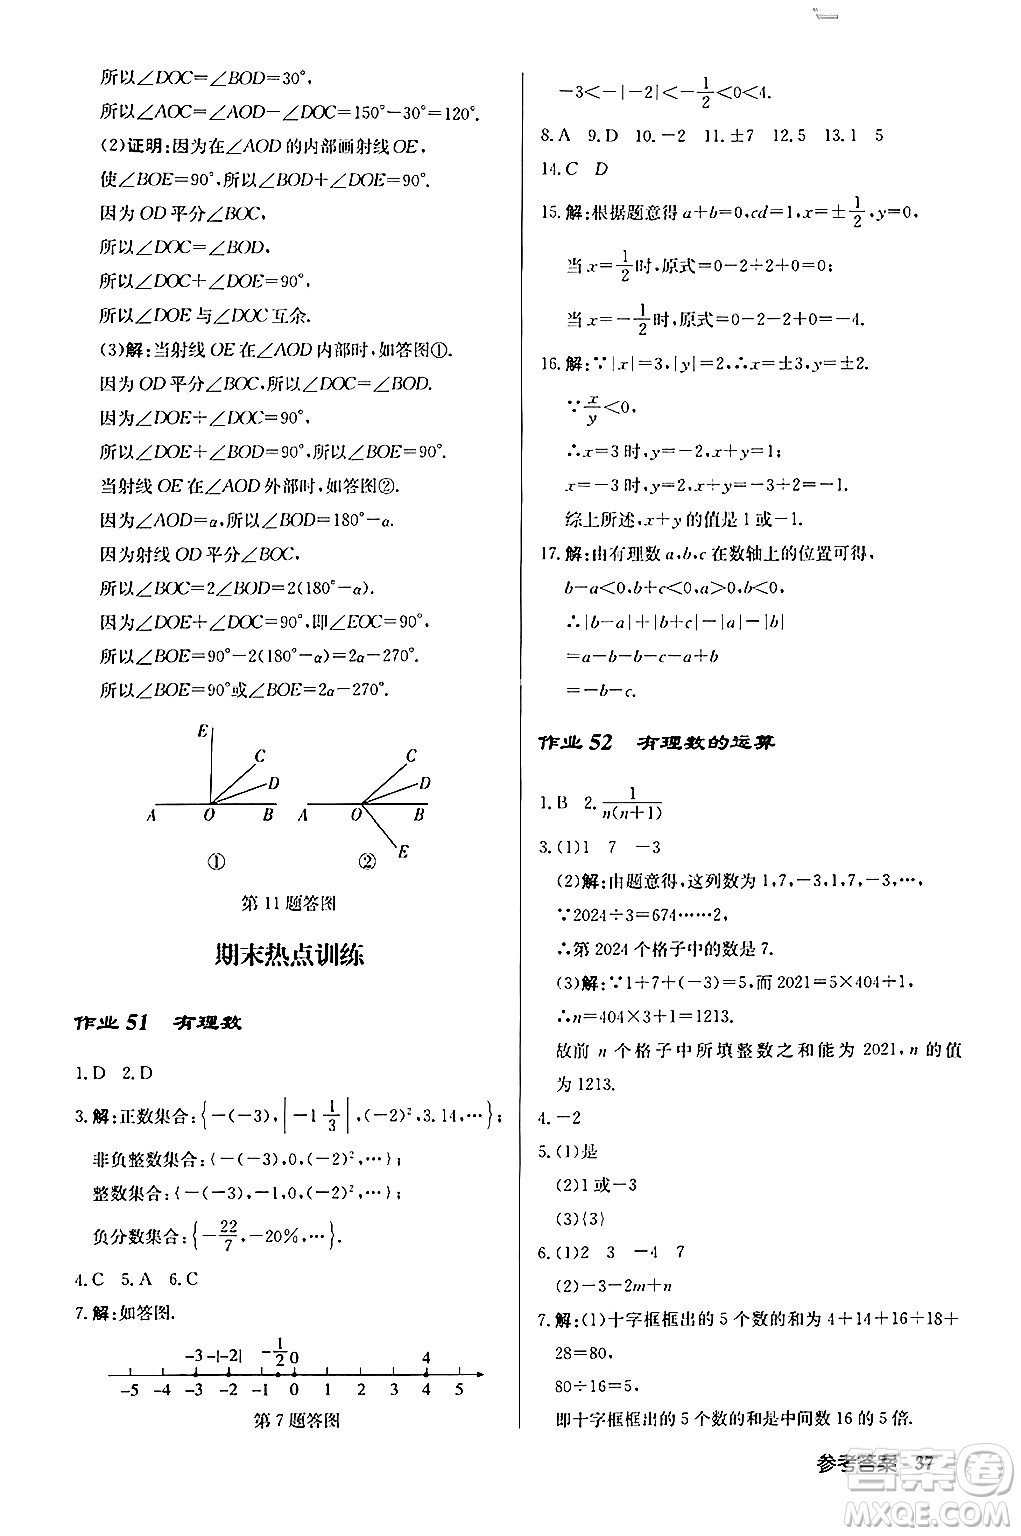 所以∠DOC=∠BOD=30°,
所以∠AOC=∠AOD-∠DOC=150°-30°=120°.
(2)证明:因为在∠AOD的内部画射线OE,
使∠BOE=90°,所以∠BOD+∠DOE=90°.
因为OD平分∠BOC,
所以∠DOC=∠BOD,
所以∠DOC+∠DOE=90°,
所以∠DOE与∠DOC互余.
(3)解:当射线OE在∠AOD内部时,如答图①.
因为OD平分∠BOC,所以∠DOC=∠BOD.
因为∠DOE+∠DOC=90°,
所以∠DOE+∠BOD=90°,所以∠BOE=90°.
当射线OE在∠AOD外部时,如答图②.
因为∠AOD=α,所以∠BOD=180°-α.
因为射线OD平分∠BOC,
所以∠BOC=2∠BOD=2(180°-α).
因为∠DOE+∠DOC=90°,即∠EOC=90°,
所以∠BOE=90°-2(180°-α)=2α-270°.
所以∠BOE=90°或∠BOE=2α-270°.
E C D A O B
C D A O B E
① ②
第11题答图
期末热点训练
作业51 有理数
1.D 2.D
3.解:正数集合:{-(-3),|-1 1/3|,(-2)²,3.14,…};
非负整数集合:{-(-3),0,(-2)²,…};
整数集合:{-(-3),-1,0,(-2)²,…};
负分数集合:{-22/7,-20%,…}.
4.C 5.A 6.C
7.解:如答图.
-3 -|-2| -1/2 0 4
-5 -4 -3 -2 -1 0 1 2 3 4 5
第7题答图
-3<-|-2|<-1/2<0<4.
8.A 9.D 10.-2 11.±7 12.5 13.1 5
14.C D
15.解:根据题意得a+b=0,cd=1,x=±1/2,y=0,
当x=1/2时,原式=0-2÷2+0=0;
当x=-1/2时,原式=0-2-2+0=-4.
16.解:∵|x|=3,|y|=2,∴x=±3,y=±2.
∵x/y<0,
∴x=3时,y=-2,x+y=1;
x=-3时,y=2,x+y=-3+2=-1.
综上所述,x+y的值是1或-1.
17.解:由有理数a,b,c在数轴上的位置可得,
b-a<0,b+c<0,a>0,b<0,
∴|b-a|+|b+c|-|a|-|b|
=a-b-b-c-a+b
=-b-c.
作业52 有理数的运算
1.B 2.1/n(n+1)
3.(1)1 7 -3
(2)解:由题意得,这列数为1,7,-3,1,7,-3,…,
∵2024÷3=674……2,
∴第2024个格子中的数是7.
(3)解:∵1+7+(-3)=5,而2021=5×404+1,
∴n=404×3+1=1213.
故前n个格子中所填整数之和能为2021,n的值
为1213.
4.-2
5.(1)是
(2)1或-3
(3){3}
6.(1)2 3 -4 7
(2)-3-2m+n
7.解:(1)十字框框出的5个数的和为4+14+16+18+
28=80,
80÷16=5,
即十字框框出的5个数的和是中间数16的5倍.
参考答案 37
答案圈
MXQE.COM